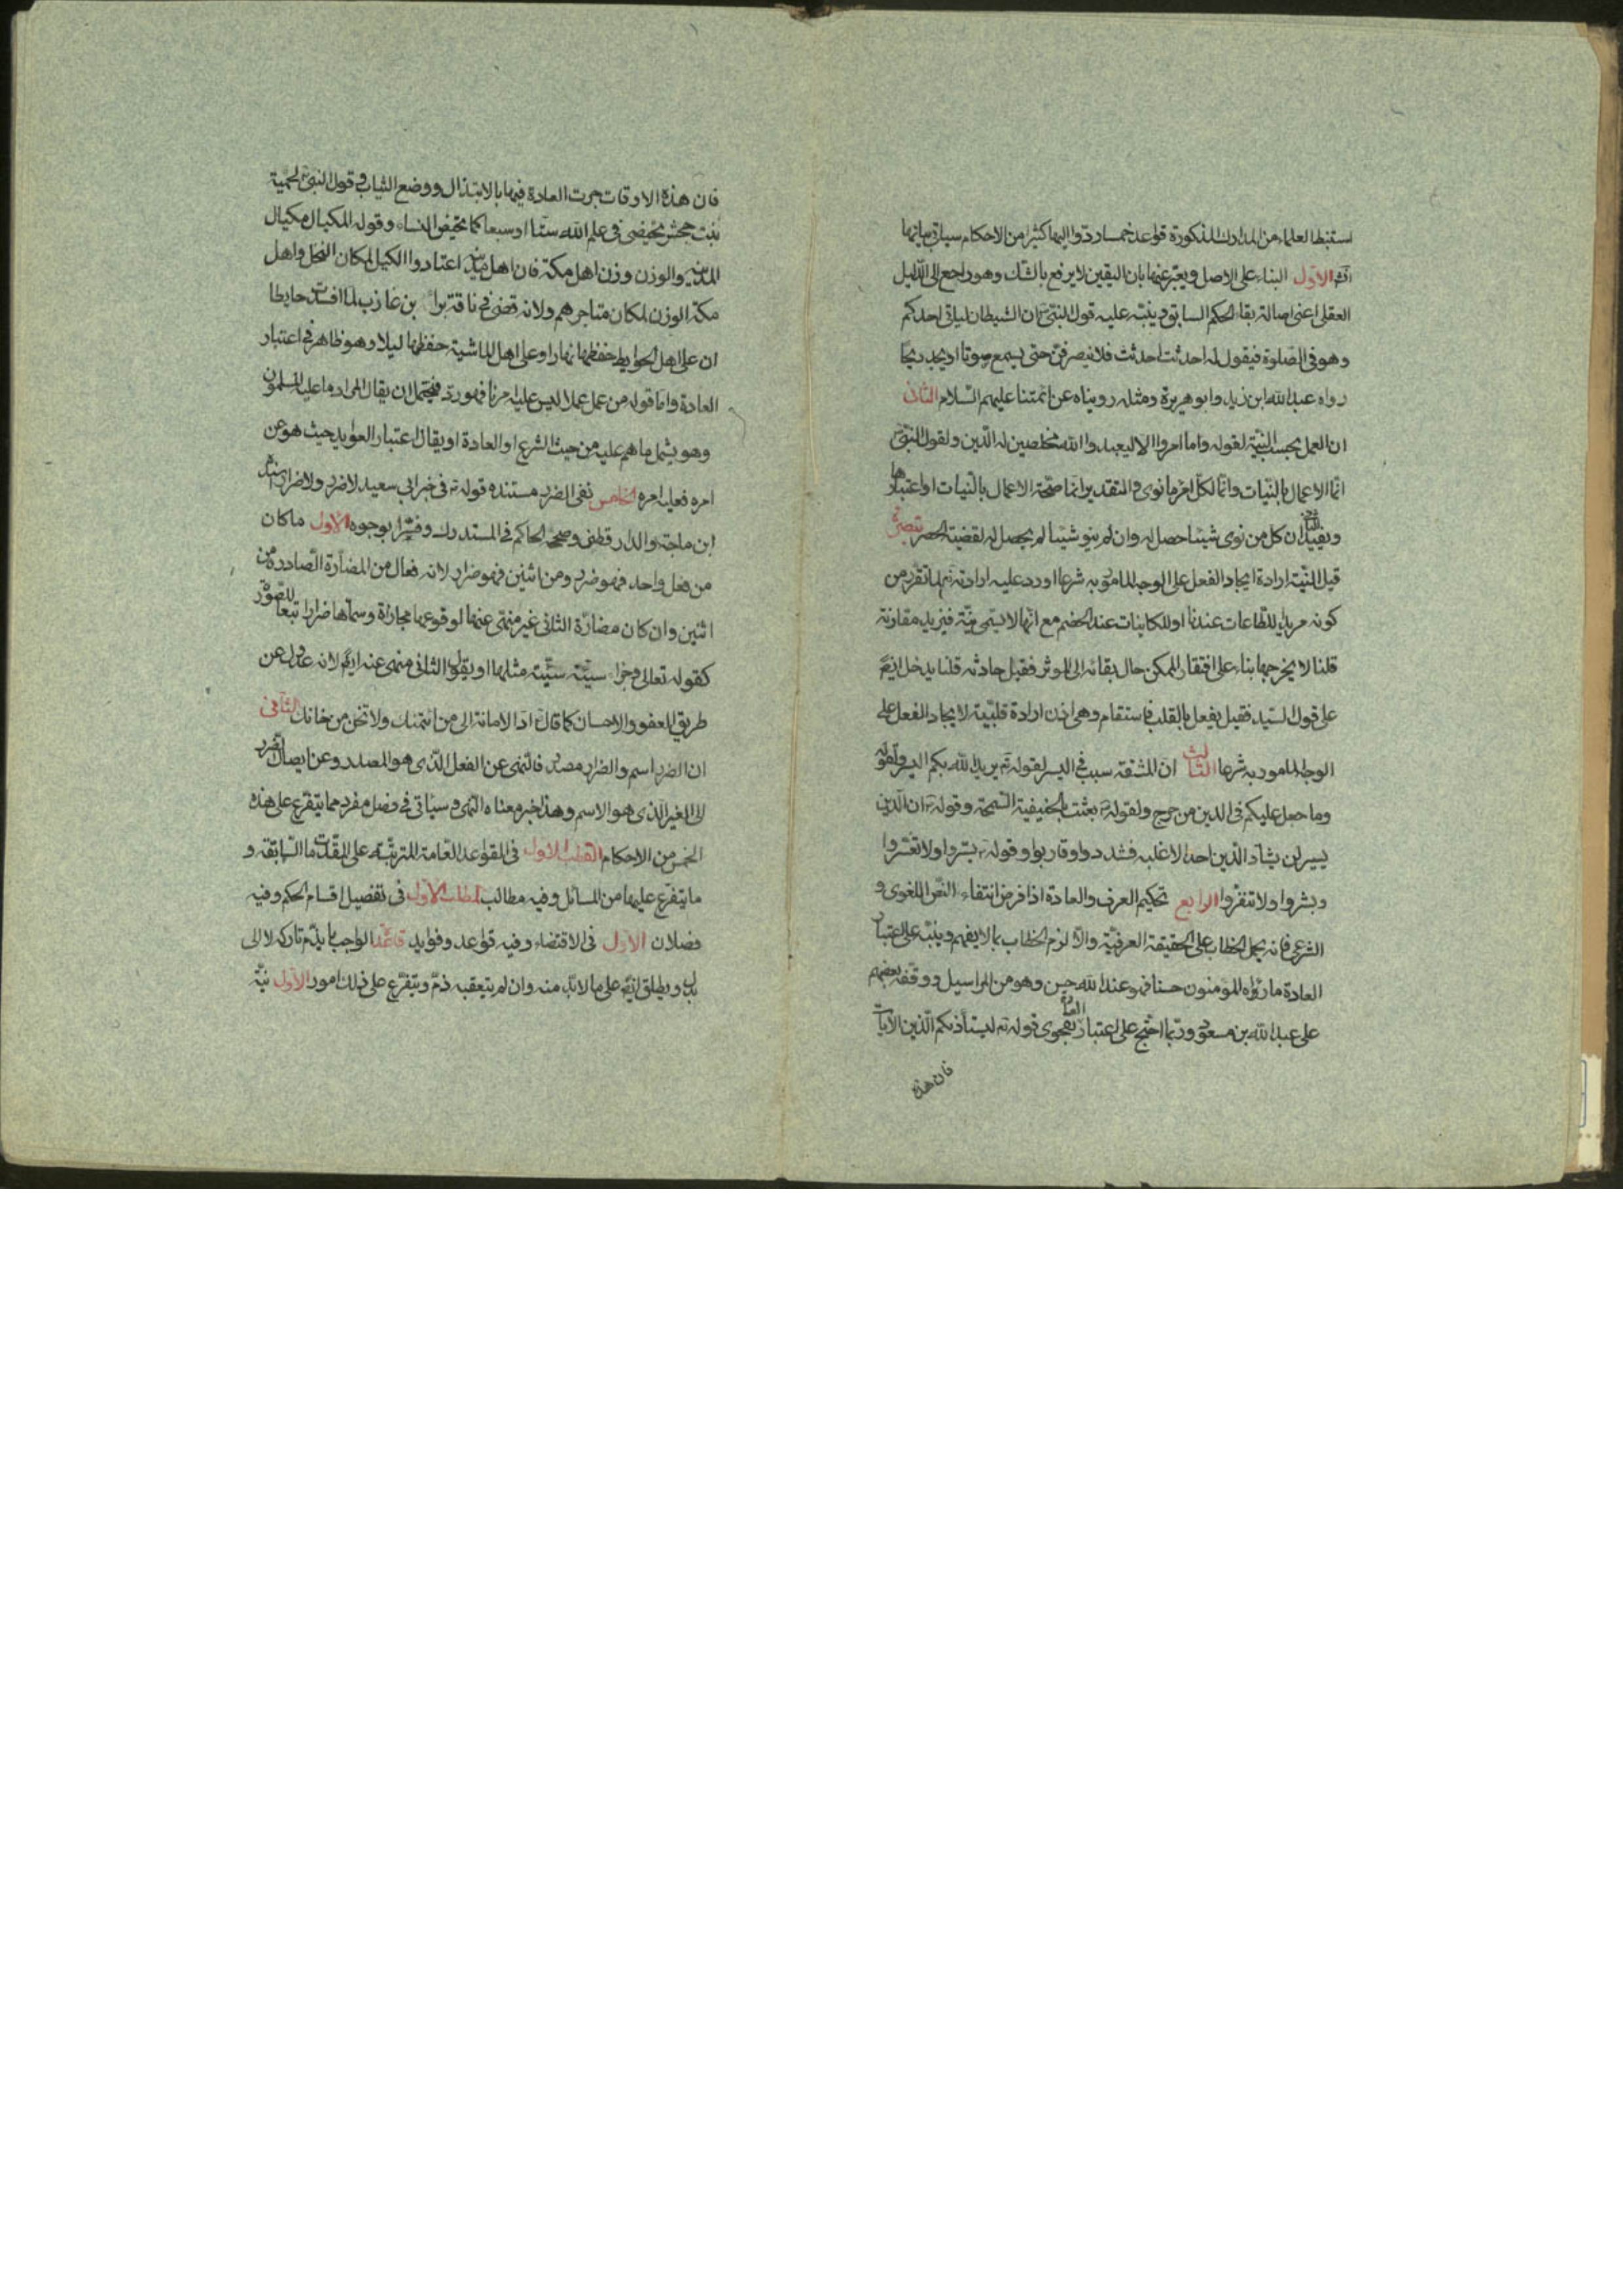 استنبط العلماء من المدارك المذكورة قواعد خمسا ردوا اليها كثيرا من الاحكام سياتى بيانها
الاول البناء على الاصل ويعبر عنها بان اليقين لا يرفع بالشك وهو راجع الى الدليل
العقلى اعنى اصالة بقاء الحكم السابق وينبه عليه قول النبى ان الشيطان لياتى احدكم
وهو فى الصلوة فيقول له احدثت احدثت فلا ينصرفن حتى يسمع صوتا او يجد ريحا
رواه عبد الله ابن زيد وابو هريرة ومثله رويناه عن ائمتنا عليهم السلام الثانى
ان العمل بحسب النية لقوله وما امروا الا ليعبدوا الله مخلصين له الدين ولقول النبى
انما الاعمال بالنيات وانما لكل امرء ما نوى والتقدير انما صحة الاعمال بالنيات او اعتبارها
ويفيد الثانى ان كل من نوى شيئا حصل له وان لم ينو شيئا لم يحصل له لقضية الحصر تبصرة
قيل النية ارادة ايجاد الفعل على الوجه المامور به شرعا اورد عليه ارادته تعالى لما تقرر من
كونه مريد للطاعات عندنا او للكاينات عند الخصم مع انها لا تسمى نية فنزيد مقارنة
قلنا لا يخرجها بناء على افتقار الممكن حال بقائه الى الموثر فقيل حادثه قلنا يدخل
على قول السيد فقيل يفعل بالقلب فاستقام وهى اذن ارادة قلبية لايجاد الفعل على
الوجه المامور به شرعا الثالث ان المشقة سبب فى اليسر لقوله تع يريد الله بكم اليسر ولقوله
وما جعل عليكم فى الدين من حرج ولقوله بعثت بالحنيفية السمحة وقوله ان الدين
يسير لن يشاد الدين احد الا غلبه فسددوا وقاربوا وقوله يسروا ولا تعسروا
وبشروا ولا تنفروا الرابع تحكيم العرف والعادة اذا فرض انتفاء النص اللغوى و
الشرعى فانه يحمل الخطاب على الحقيقة العرفية والا لزم الخطاب بما لا يفهم وينبه على اعتبار
العادة ما رواه المومنون حسنا فهو عند الله حسن وهو من المراسيل ووقفه بعضهم
على عبد الله بن مسعود وربما احتج على اعتبار العادة بفحوى قوله تع ليستأذنكم الذين الآيات
فان هذه
فان هذه الاوقات جرت العادة فيها بالابتذال ووضع الثياب فى قول النبى لحمنة
بنت جحش تحيضى فى علم الله ستا او سبعا كما تحيض النساء وقوله المكيال مكيال
المدينة والوزن وزن اهل مكة فان اهل المدينة اعتادوا الكيل لمكان النخل واهل
مكة الوزن لمكان متاجرهم ولانه قضى فى ناقة براء بن عازب لما افسدت حايطا
ان على اهل الحوايط حفظها نهارا وعلى اهل الماشية حفظها ليلا وهو ظاهر فى اعتبار
العادة واما قوله من عمل عملا ليس عليه امرنا فهو رد فيحتمل ان يقال المراد ما عليه المسلمون
وهو يشمل ما هم عليه من حيث الشرع او العادة او يقال اعتبار العوايد حيث هو عن
امره فعليه امره الخامس نفى الضرر مستنده قوله فى خبر ابى سعيد لا ضرر ولا ضرار
ابن ماجة والدارقطنى وصححه الحاكم فى المستدرك وفسر بوجوه الاول ما كان
من فعل واحد فهو ضرر ومن اثنين فهو ضرار لانه فعال من المضارة الصادرة من
اثنين وان كان مضارة الثانى غير منهى عنها لوقوعها مجازاة وسماها ضرارا تبعا للصورة
كقوله تعالى وجزاء سيئة سيئة مثلها او يقول الثانى منهى عنه لانه عدول عن
طريق العفو والاحسان كما قال اد الامانة الى من ائتمنك ولا تخن من خانك الثانى
ان الضرر اسم والضرار مصدر فالنهى عن الفعل الذى هو المصدر وعن ايصال الضرر
الى الغير الذى هو الاسم وهذا خبر معناه النهى وسياتى فى فصل مفرد مما يتفرع على هذه
الخمس من الاحكام القطب الاول فى القواعد العامة المترتبة على المقدمات السابقة و
ما يتفرع عليها من المسائل وفيه مطالب المطلب الاول فى تفصيل اقسام الحكم وفيه
فصلان الاول فى الاقتضاء وفيه قواعد وفوايد قاعدة الواجب ما يذم تاركه لا الى
بدل ويطلق على ما لا بد منه وان لم يتعقبه ذم ويتفرع على ذلك امور الاول نية